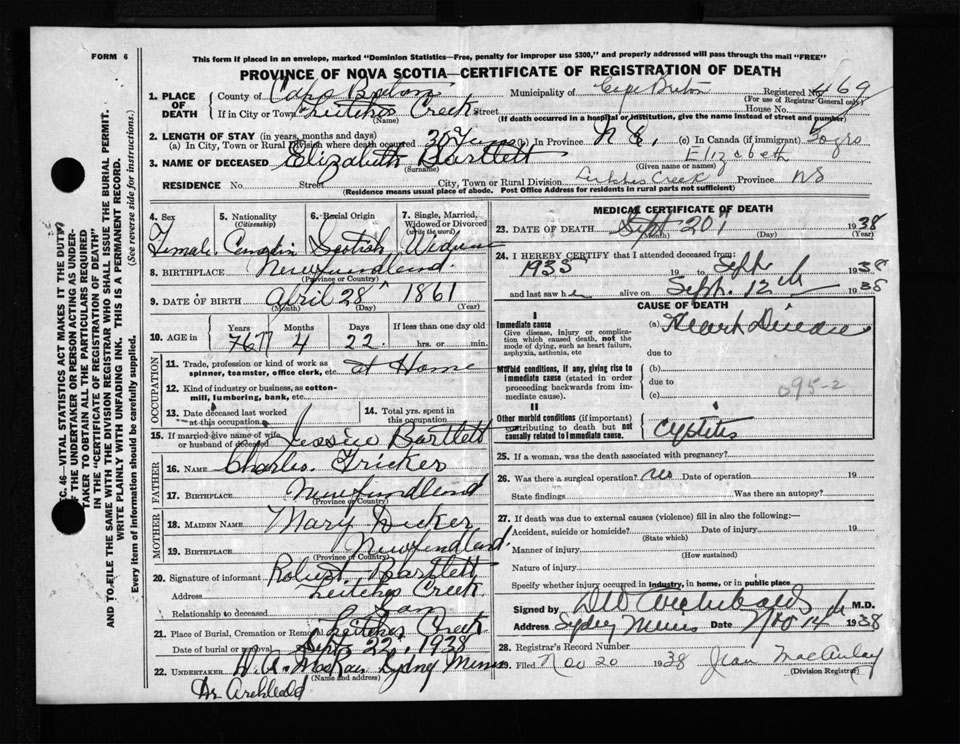 FORM 6
This form if placed in an envelope, marked "Dominion Statistics—Free, penalty for improper use $300," and properly addressed will pass through the mail "FREE"
PROVINCE OF NOVA SCOTIA—CERTIFICATE OF REGISTRATION OF DEATH
1. PLACE OF DEATH
County of Cape Breton Municipality of Cape Breton Registered No. 469
(For use of Registrar General only)
If in City or Town Leitches Creek Street House No.
(Name) (If death occurred in a hospital or institution, give the name instead of street and number)
2. LENGTH OF STAY (in years, months and days)
(a) In City, Town or Rural Division where death occurred 30 Years (b) In Province N S. (c) In Canada (if immigrant) 50 yrs
3. NAME OF DECEASED Elizabeth Bartlett Elizabeth
(Surname) (Given name or names)
RESIDENCE No. Street City, Town or Rural Division Leitches Creek Province NS
(Residence means usual place of abode. Post Office Address for residents in rural parts not sufficient)
4. Sex 5. Nationality (Citizenship) 6. Racial Origin 7. Single, Married, Widowed or Divorced (write the word)
Female Scotish Widow
8. BIRTHPLACE Newfundlend.
(Province or Country)
9. DATE OF BIRTH April 28 1861
(Month) (Day) (Year)
10. AGE in Years Months Days If less than one day old
76 77 4 22. hrs. or min.
OCCUPATION
11. Trade, profession or kind of work as spinner, teamster, office clerk, etc. at Home
12. Kind of industry or business, as cotton-mill, lumbering, bank, etc.
13. Date deceased last worked at this occupation 14. Total yrs. spent in this occupation
15. If married give name of wife or husband of deceased Jessice Bartlett
FATHER
16. NAME Charles. Tricker
17. BIRTHPLACE Newfundlend
(Province or Country)
MOTHER
18. MAIDEN NAME Mary Dicker
19. BIRTHPLACE Newfundlend.
(Province or Country)
20. Signature of informant Robert Bartlett
Address Leitches Creek.
Relationship to deceased Son
21. Place of Burial, Cremation or Removal Leitches Creek
Date of burial or removal Sept 22, 1938
22. UNDERTAKER Sydney Mines
(Name and address)
Dr Archibald
MEDICAL CERTIFICATE OF DEATH
23. DATE OF DEATH Sept 20 1938
(Month) (Day) (Year)
24. I HEREBY CERTIFY that I attended deceased from:
1935 19 to Sept 1938
and last saw h alive on Sept. 12th 1938
CAUSE OF DEATH
I
Immediate cause
Give disease, injury or complication which caused death, not the mode of dying, such as heart failure, asphyxia, asthenia, etc
(a) Heart Disease
due to
Morbid conditions, if any, giving rise to immediate cause (stated in order proceeding backwards from immediate cause).
(b)
due to
(c) 095-2
II
Other morbid conditions (if important) contributing to death but not causally related to immediate cause.
Cystitis
25. If a woman, was the death associated with pregnancy?
26. Was there a surgical operation? no Date of operation 19
State findings Was there an autopsy?
27. If death was due to external causes (violence) fill in also the following:—
Accident, suicide or homicide? Date of injury 19
(State which)
Manner of injury
(How sustained)
Nature of injury
Specify whether injury occurred in industry, in home, or in public place
Signed by Archibald M.D.
Address Sydney Mines Date Nov 14th 1938
28. Registrar's Record Number
29. Filed Nov 20 1938 Jean MacAulay
(Division Registrar)
SEC. 46—VITAL STATISTICS ACT MAKES IT THE DUTY OF THE UNDERTAKER OR PERSON ACTING AS UNDERTAKER TO OBTAIN ALL THE PARTICULARS REQUIRED IN THE "CERTIFICATE OF REGISTRATION OF DEATH"
AND TO FILE THE SAME WITH THE DIVISION REGISTRAR WHO SHALL ISSUE THE BURIAL PERMIT.
WRITE PLAINLY WITH UNFADING INK. THIS IS A PERMANENT RECORD.
Every item of information should be carefully supplied. (See reverse side for instructions.)